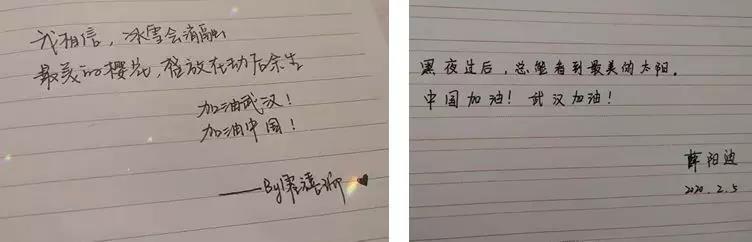 我相信，冰雪会消融
最美的樱花，释放在劫后余生
加油武汉！
加油中国！
——By
黑夜过后，总能看到最美的太阳。
中国加油！武汉加油！
薛阳迪
2020.2.5